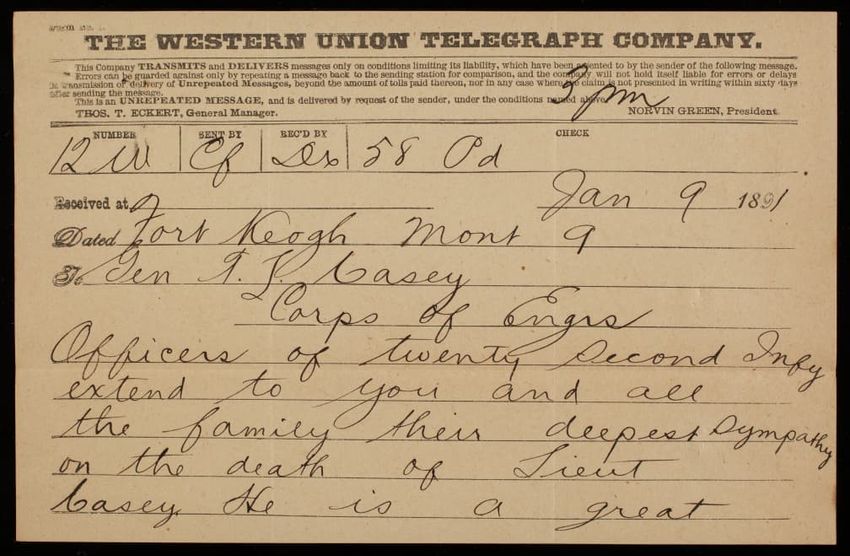 THE WESTERN UNION TELEGRAPH COMPANY.
This Company TRANSMITS and DELIVERS messages only on conditions limiting its liability, which have been assented to by the sender of the following message.
Errors can be guarded against only by repeating a message back to the sending station for comparison, and the company will not hold itself liable for errors or delays
in transmission or delivery of Unrepeated Messages, beyond the amount of tolls paid thereon, nor in any case where the claim is not presented in writing within sixty days
after sending the message.
This is an UNREPEATED MESSAGE, and is delivered by request of the sender, under the conditions named above.
2 pm
THOS. T. ECKERT, General Manager. NORVIN GREEN, President.
NUMBER SENT BY REC'D BY CHECK
12 W Cf Ds 58 Pd
Received at Jan 9 1891
Dated Fort Keogh Mont 9
To Gen T. L. Casey
Corps of Engrs
Officers of twenty second Infy
extend to you and all
the family their deepest sympathy
on the death of Lieut
Casey. He is a great